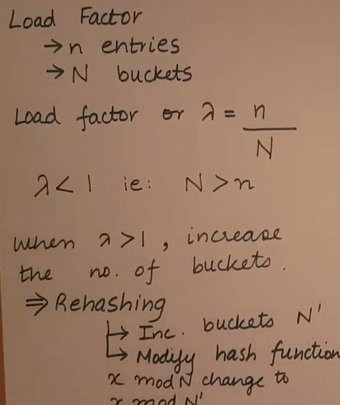 Load Factor
→ n entries
→ N buckets
Load factor or λ = n
N
λ < 1 ie: N > n
when λ > 1, increase
the no. of buckets.
⇒ Rehashing
↳ Inc. buckets N'
↳ Modify hash function
x mod N change to
x mod N'